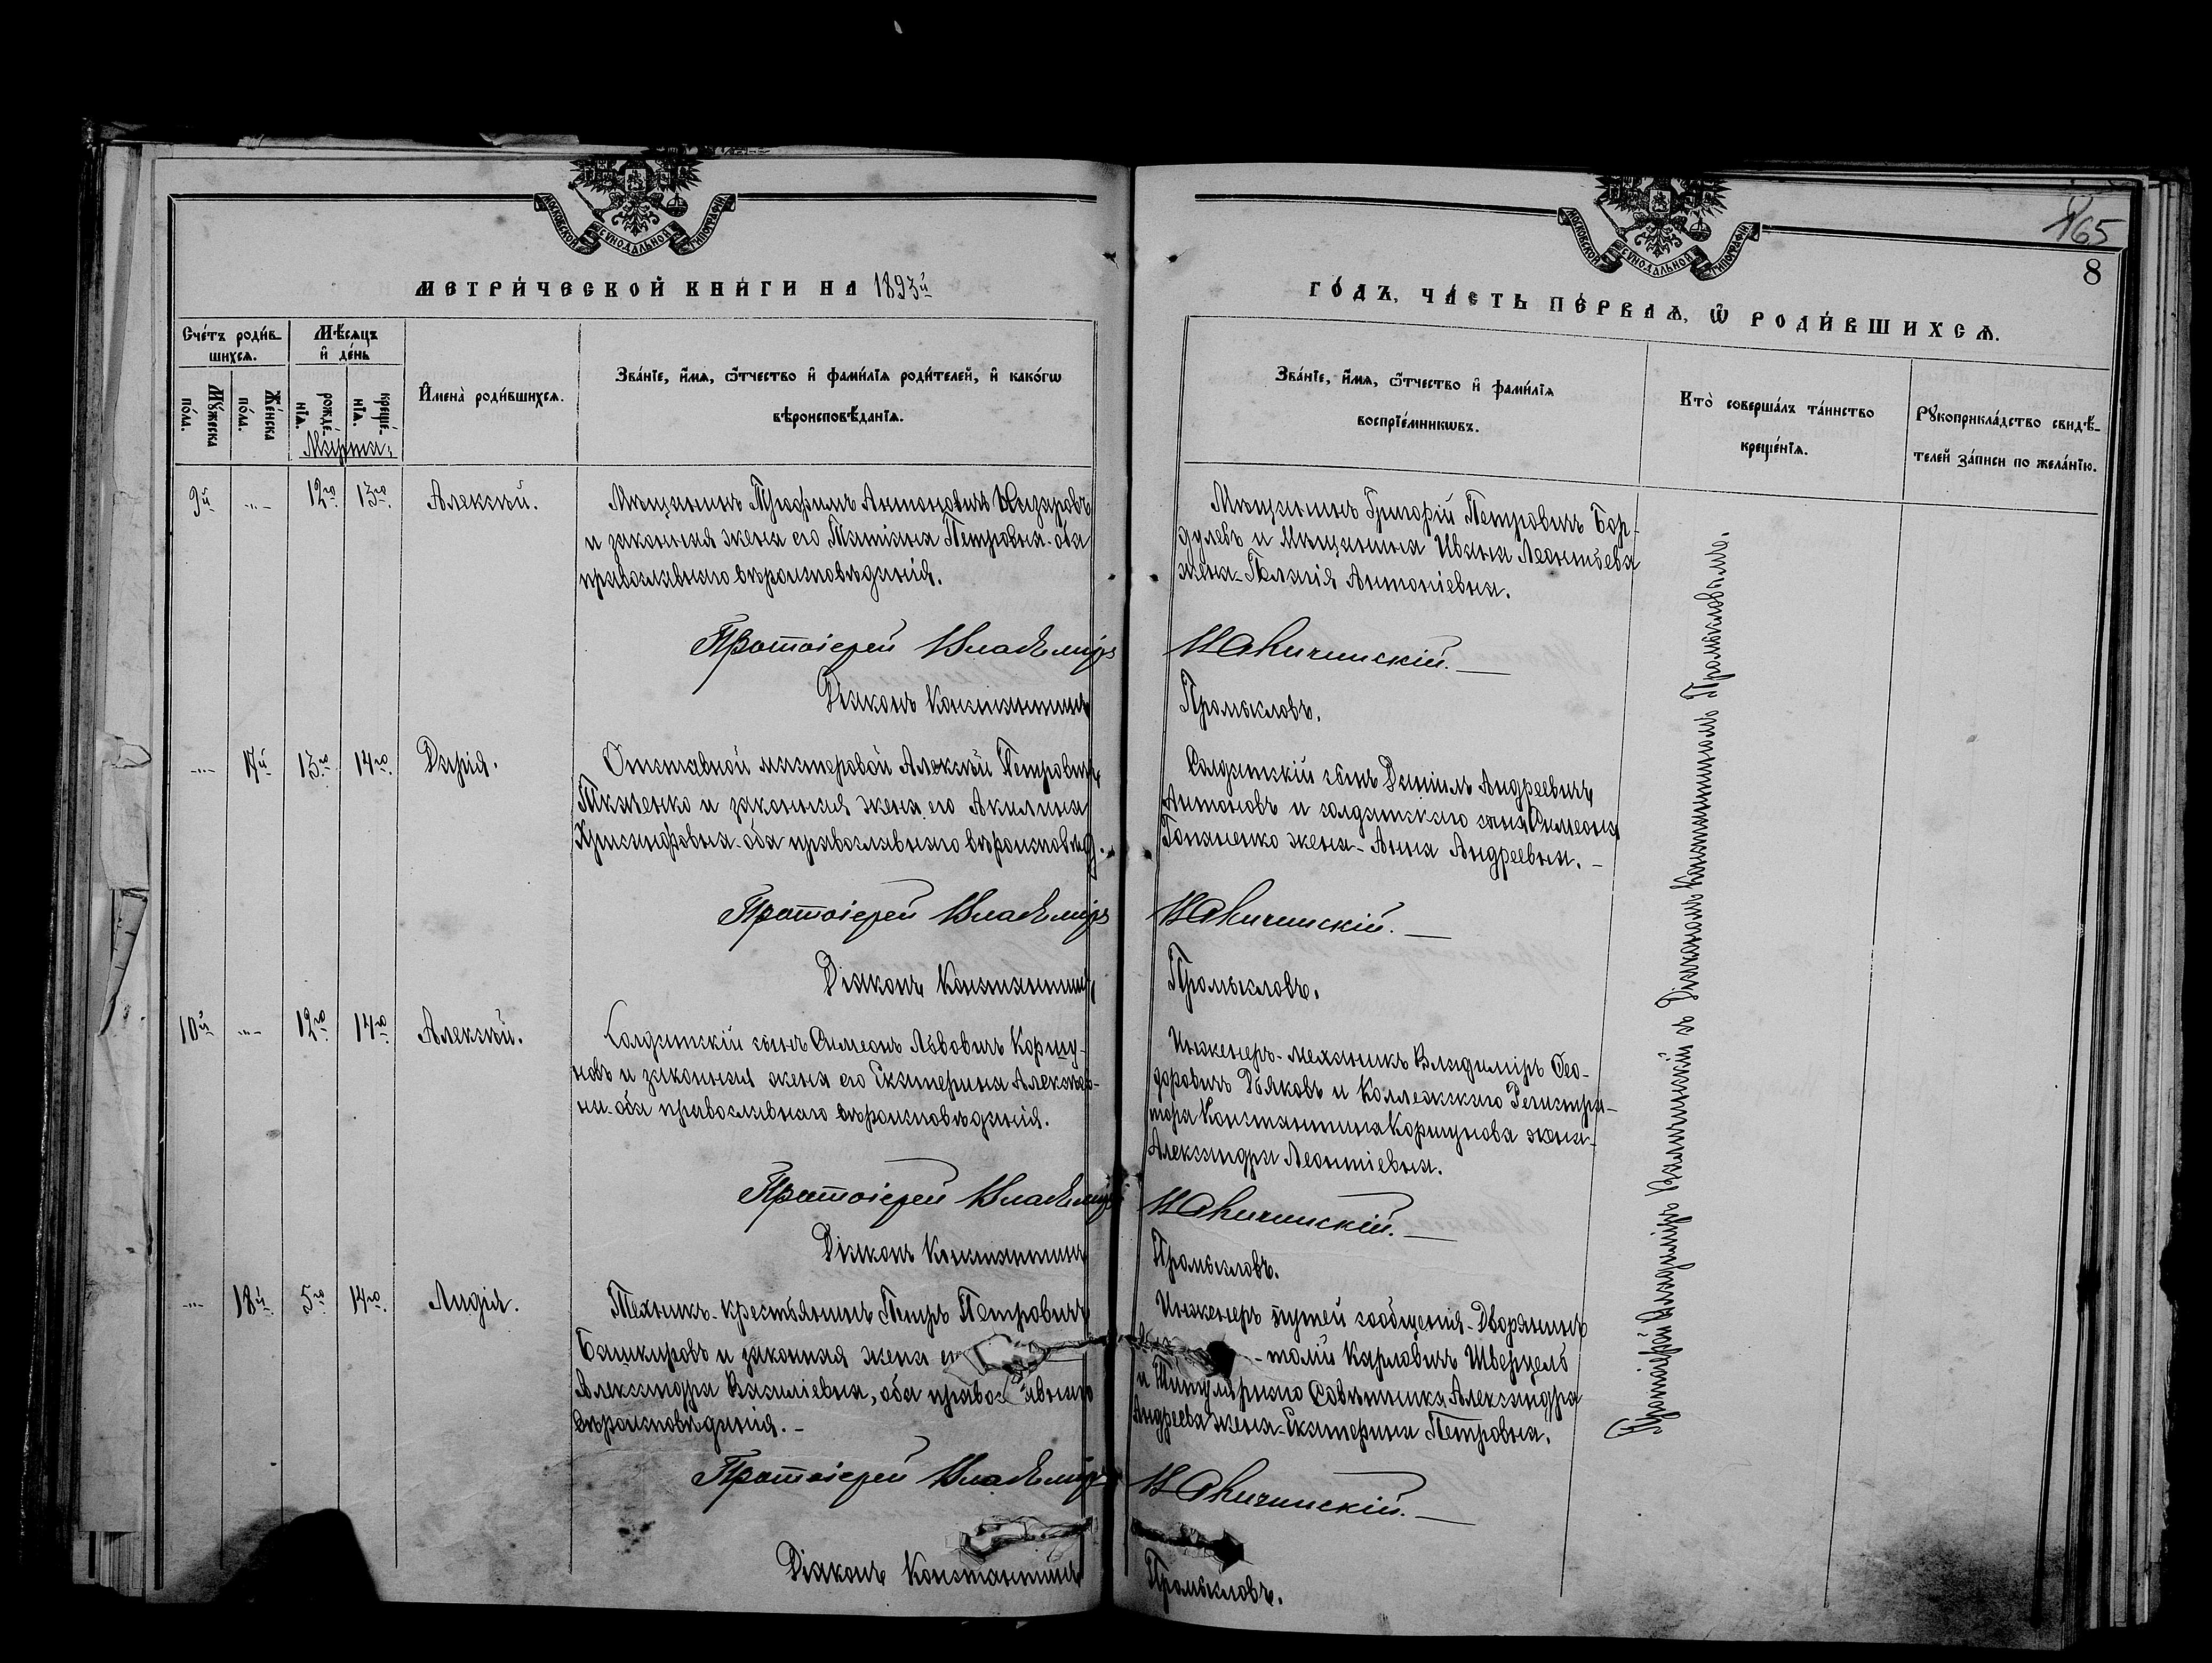 165
8
МОСКОВСКОЙ СѴНОДАЛЬНОЙ ТИПОГРАФІИ
МОСКОВСКОЙ СѴНОДАЛЬНОЙ ТИПОГРАФІИ
МЕТРИ́ЧЕСКОЙ КНИ́ГИ НА 1893й
ГО́ДЪ, ЧА́СТЬ ПЕ́РВАѦ, Ѽ РОДИ́ВШИХСѦ.
Сче́тъ роди́в-
шихсѧ.
Мꙋ́жеска
по́ла.
Же́нска
по́ла.
Мѣ́сѧцъ
и҆ де́нь
рожде́-
нїѧ.
креще́-
нїѧ.
Марта.
И҆мена̀ роди́вшихсѧ.
Зва́нїе, и҆́мѧ, ѻ҆́тчество и҆ фами́лїѧ роди́телей, и҆ како́гѡ
вѣроисповѣ́данїѧ.
Зва́нїе, и҆́мѧ, ѻ҆́тчество и҆ фами́лїѧ
воспрїе́мникѡвъ.
Кто̀ соверша́лъ та́инство
креще́нїѧ.
Рꙋкоприкла́дство свидѣ́-
телей за́писи по жела́нїю.
9й -„- 12го 13го Алексѣй.
Мѣщанинъ Трофимъ Антоновичъ Назаровъ
и законная жена его Татіана Петровна-оба
православнаго вѣроисповѣданія.
Мѣщанинъ Григорій Петровичъ Бор-
дулевъ и Мѣщанина Ивана Леонтьева
жена-Пелагія Антоніевна.
Протоіерей Владиміръ
Діаконъ Константинъ
Промысловъ.
-„- 17й 13го 14го Дарія.
Отставной мастеровой Алексѣй Петровичъ
Ткаченко и законная жена его Акилина
Христофоровна-оба православнаго вѣроисповѣд.
Солдатскій сынъ Даніилъ Андреевичъ
Антоновъ и солдатскаго сына Симеона
жена-Анна Андреевна.-
Протоіерей Владиміръ
Діаконъ Константинъ
Промысловъ.
10й -„- 12го 14го Алексѣй.
Солдатскій сынъ Симеонъ Львовичъ Коршу-
новъ и законная жена его Екатерина Алексѣев-
на-оба православнаго вѣроисповѣданія.
Инженеръ-механикъ Владиміръ Ѳео-
доровичъ Дьяковъ и Коллежскаго Регистра-
тора Константина Коршунова жена-
Александра Леонтіевна.
Протоіерей Владиміръ
Діаконъ Константинъ
Промысловъ.
-„- 18й 5го 14го Лидія.
Техникъ-крестьянинъ Петръ Петровичъ
Башкировъ и законная жена
Александра Василіевна, оба православнаго
вѣроисповѣданія.-
Инженеръ путей сообщенія-Дворянинъ
-толій Карловичъ Шверцель
и Титулярнаго Совѣтника Александра
Андреева жена-Екатерина Петровна.
Протоіерей Владиміръ
Діаконъ Константинъ
Промысловъ.
Протоіерей Владиміръ съ Діакономъ Константиномъ Промысловымъ.